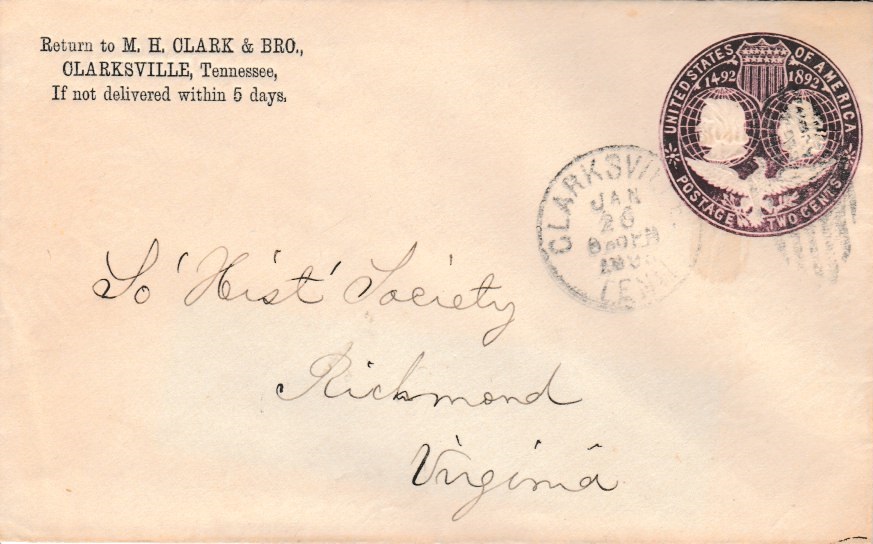 Return to M. H. CLARK & BRO.,
CLARKSVILLE, Tennessee,
If not delivered within 5 days.
UNITED STATES OF AMERICA
1492 1892
POSTAGE TWO CENTS
CLARKSVI
JAN
26
TENN
So' Hist' Society
Richmond
Virginia